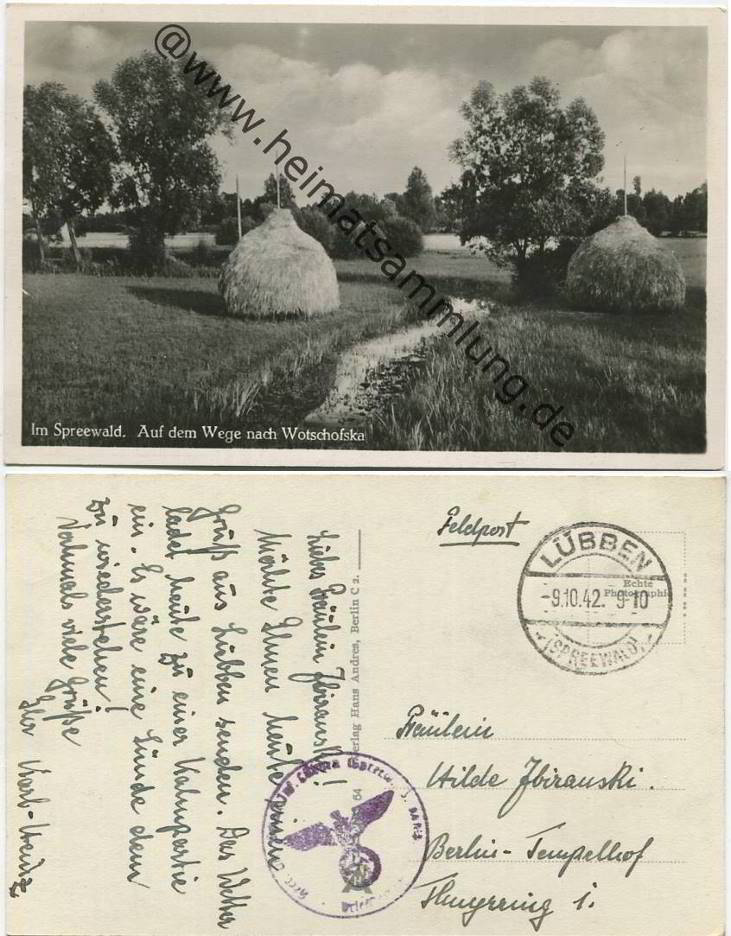 @www.heimatsammlung.de
Im Spreewald. Auf dem Wege nach Wotschofska
Feldpost
LÜBBEN
-9.10.42. 9-10
(SPREEWALD)
Echte
Photographie
Verlag Hans Andres, Berlin C 2.
64
Fräulein
Hilde Zbiranski.
Berlin-Tempelhof
Liebes Fräulein Zbiranski!
Möchte Ihnen heute einen
Gruß aus Lübben senden. Das Wetter
ladet heute zu einer Kahnpartie
ein. Es wäre eine Sünde dem
zu wiederstehen!
Vielmals viele Grüße
Ihr Karl-Heinz